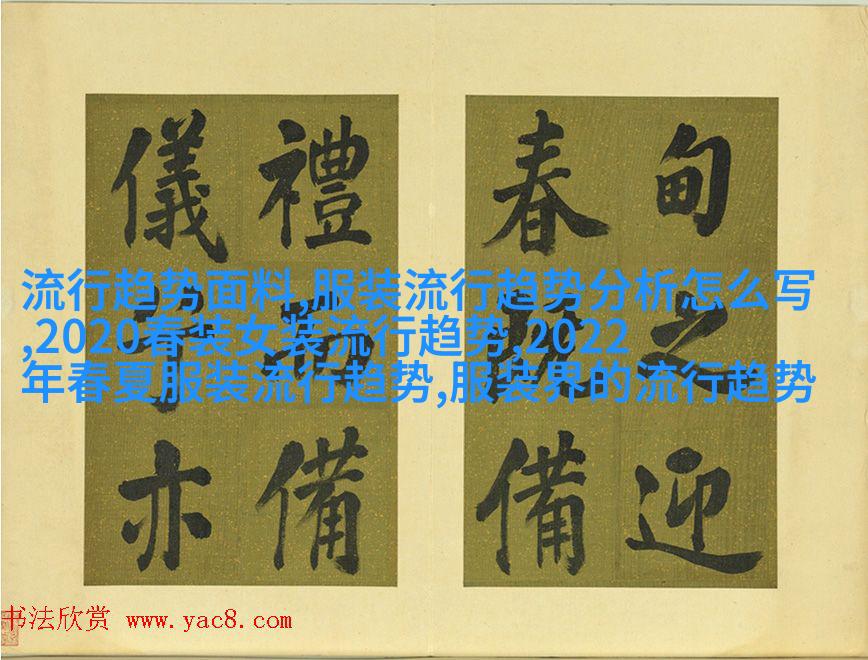 甸之迎
春備
禮備
儀亦
流行趋势面料,服装流行趋势分析怎么写
,2020春装女装流行趋势,2022
年春夏服装流行趋势,服装界的流行趋势
书法欣赏 www.yac8.com